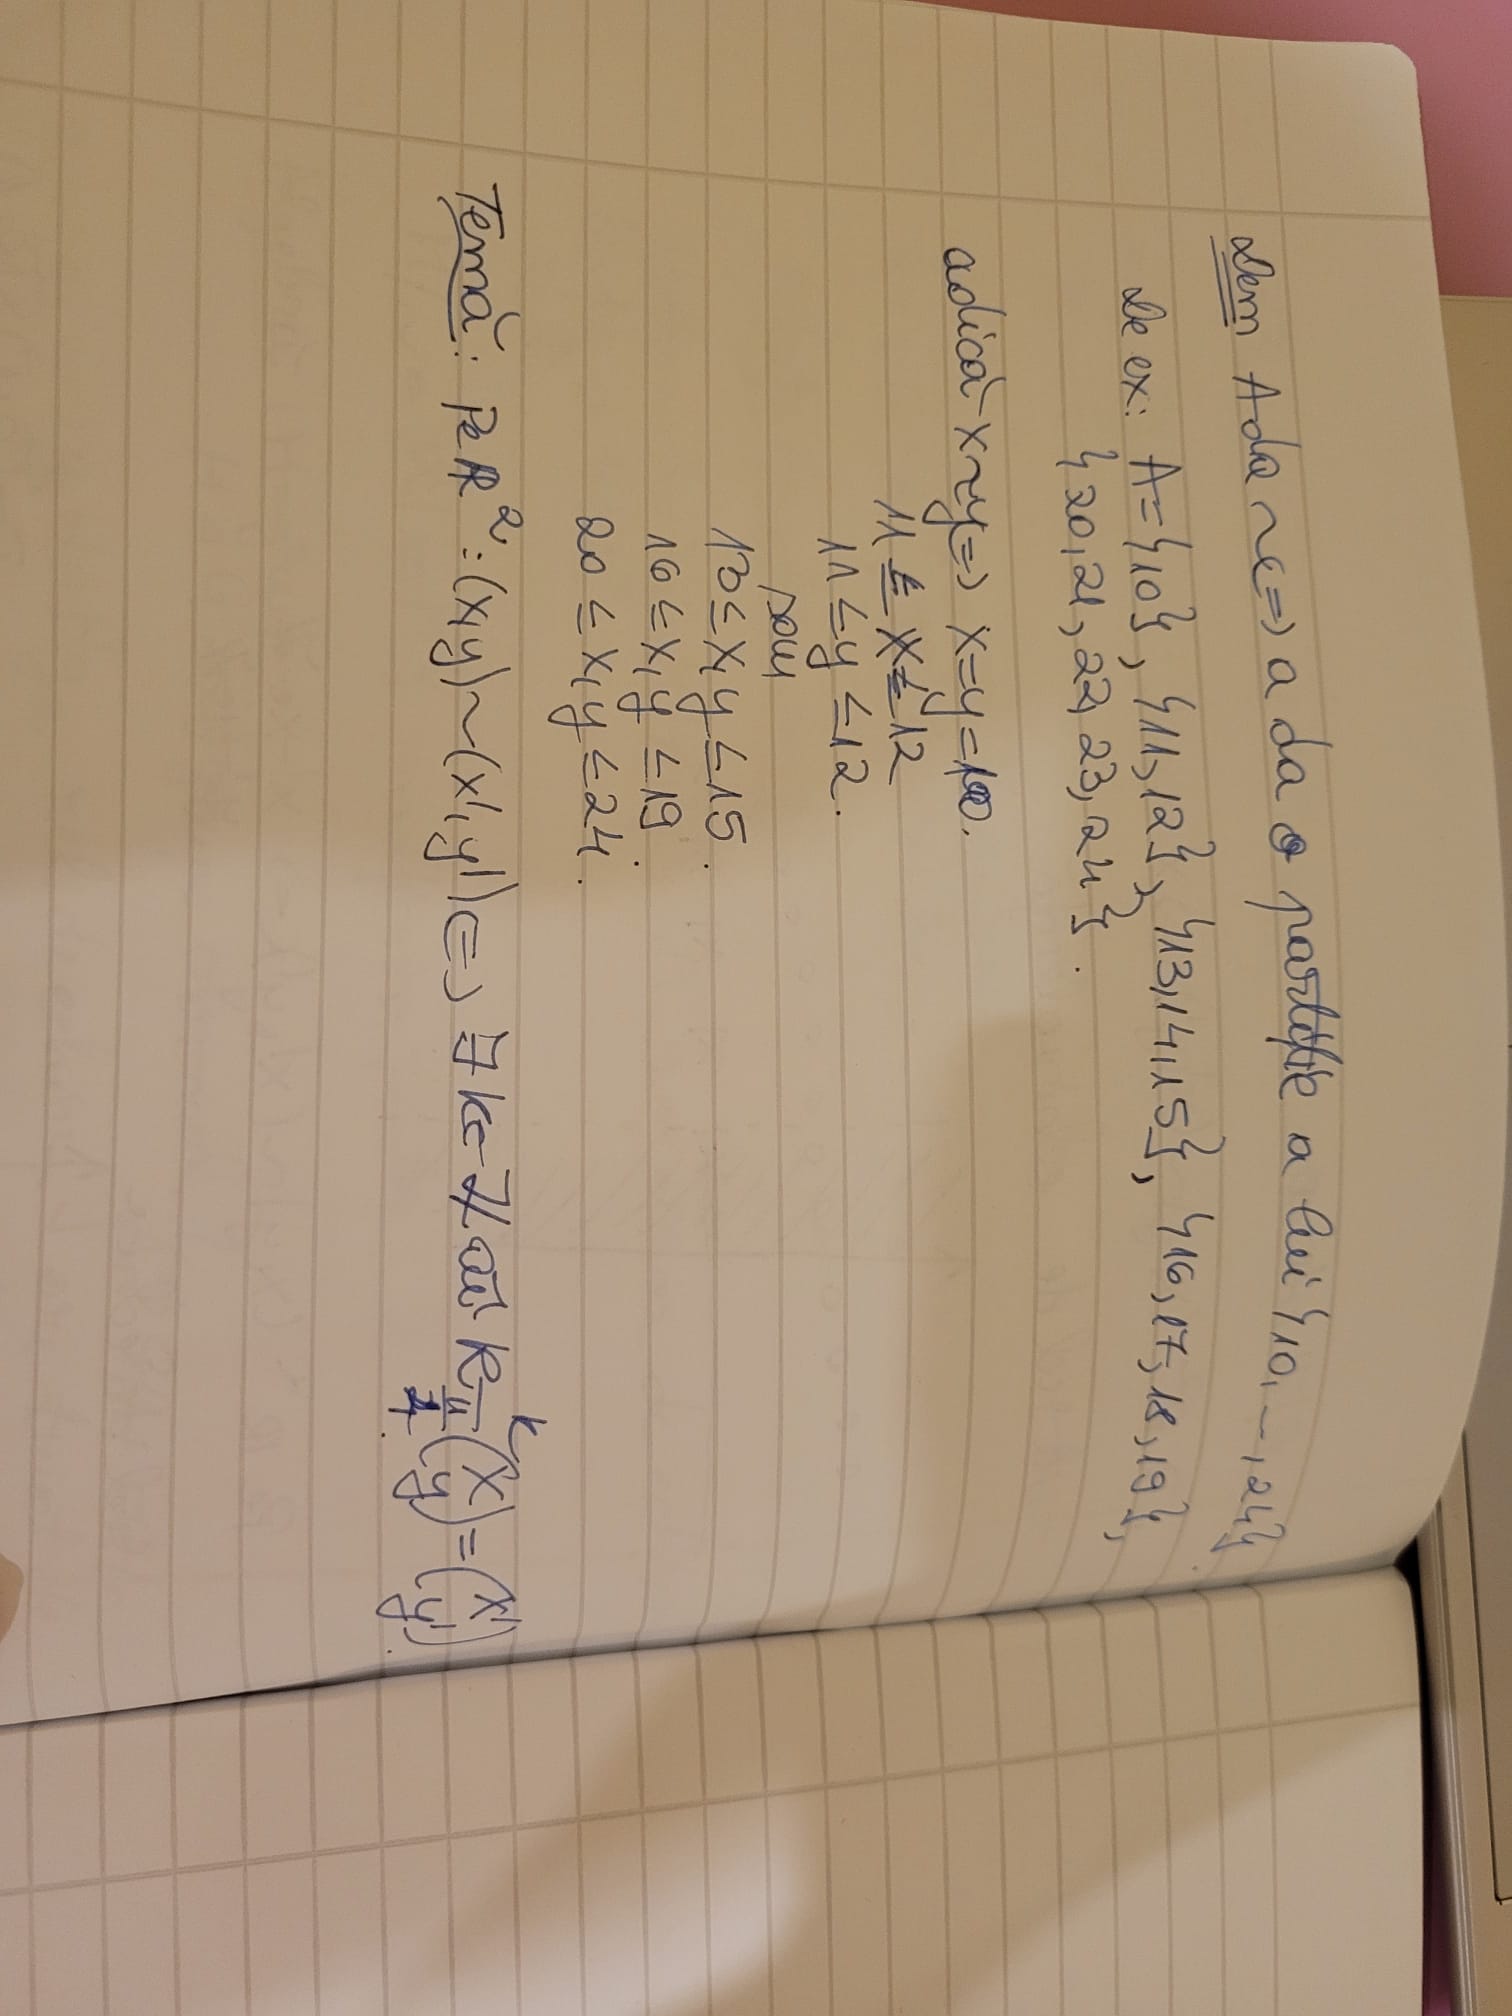 Dem A da ~ <=> a da o partiție a lui {10, ..., 24}
De ex: A = {10}, {11, 12}, {13, 14, 15}, {16, 17, 18, 19},
{20, 21, 22, 23, 24}.
adică x~y <=> x=y=10.
11 ≤ x ≤ 12
11 ≤ y ≤ 12.
sau
13 ≤ x, y ≤ 15.
16 ≤ x, y ≤ 19.
20 ≤ x, y ≤ 24.
Temă: Pe ℝ²: (x, y) ~ (x', y') <=> ∃ k ∈ ℤ aî R^k_{π/4} (x y) = (x' y').